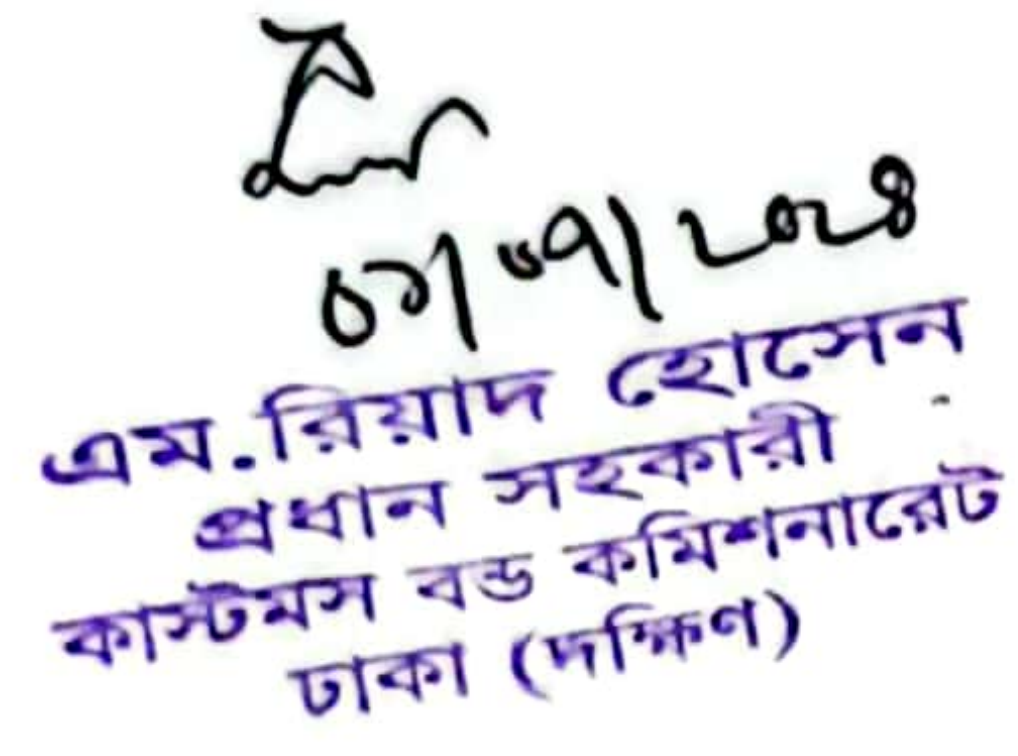 ০১/০৭/২০২৪
এম.রিয়াদ হোসেন
প্রধান সহকারী
কাস্টমস বন্ড কমিশনারেট
ঢাকা (দক্ষিণ)